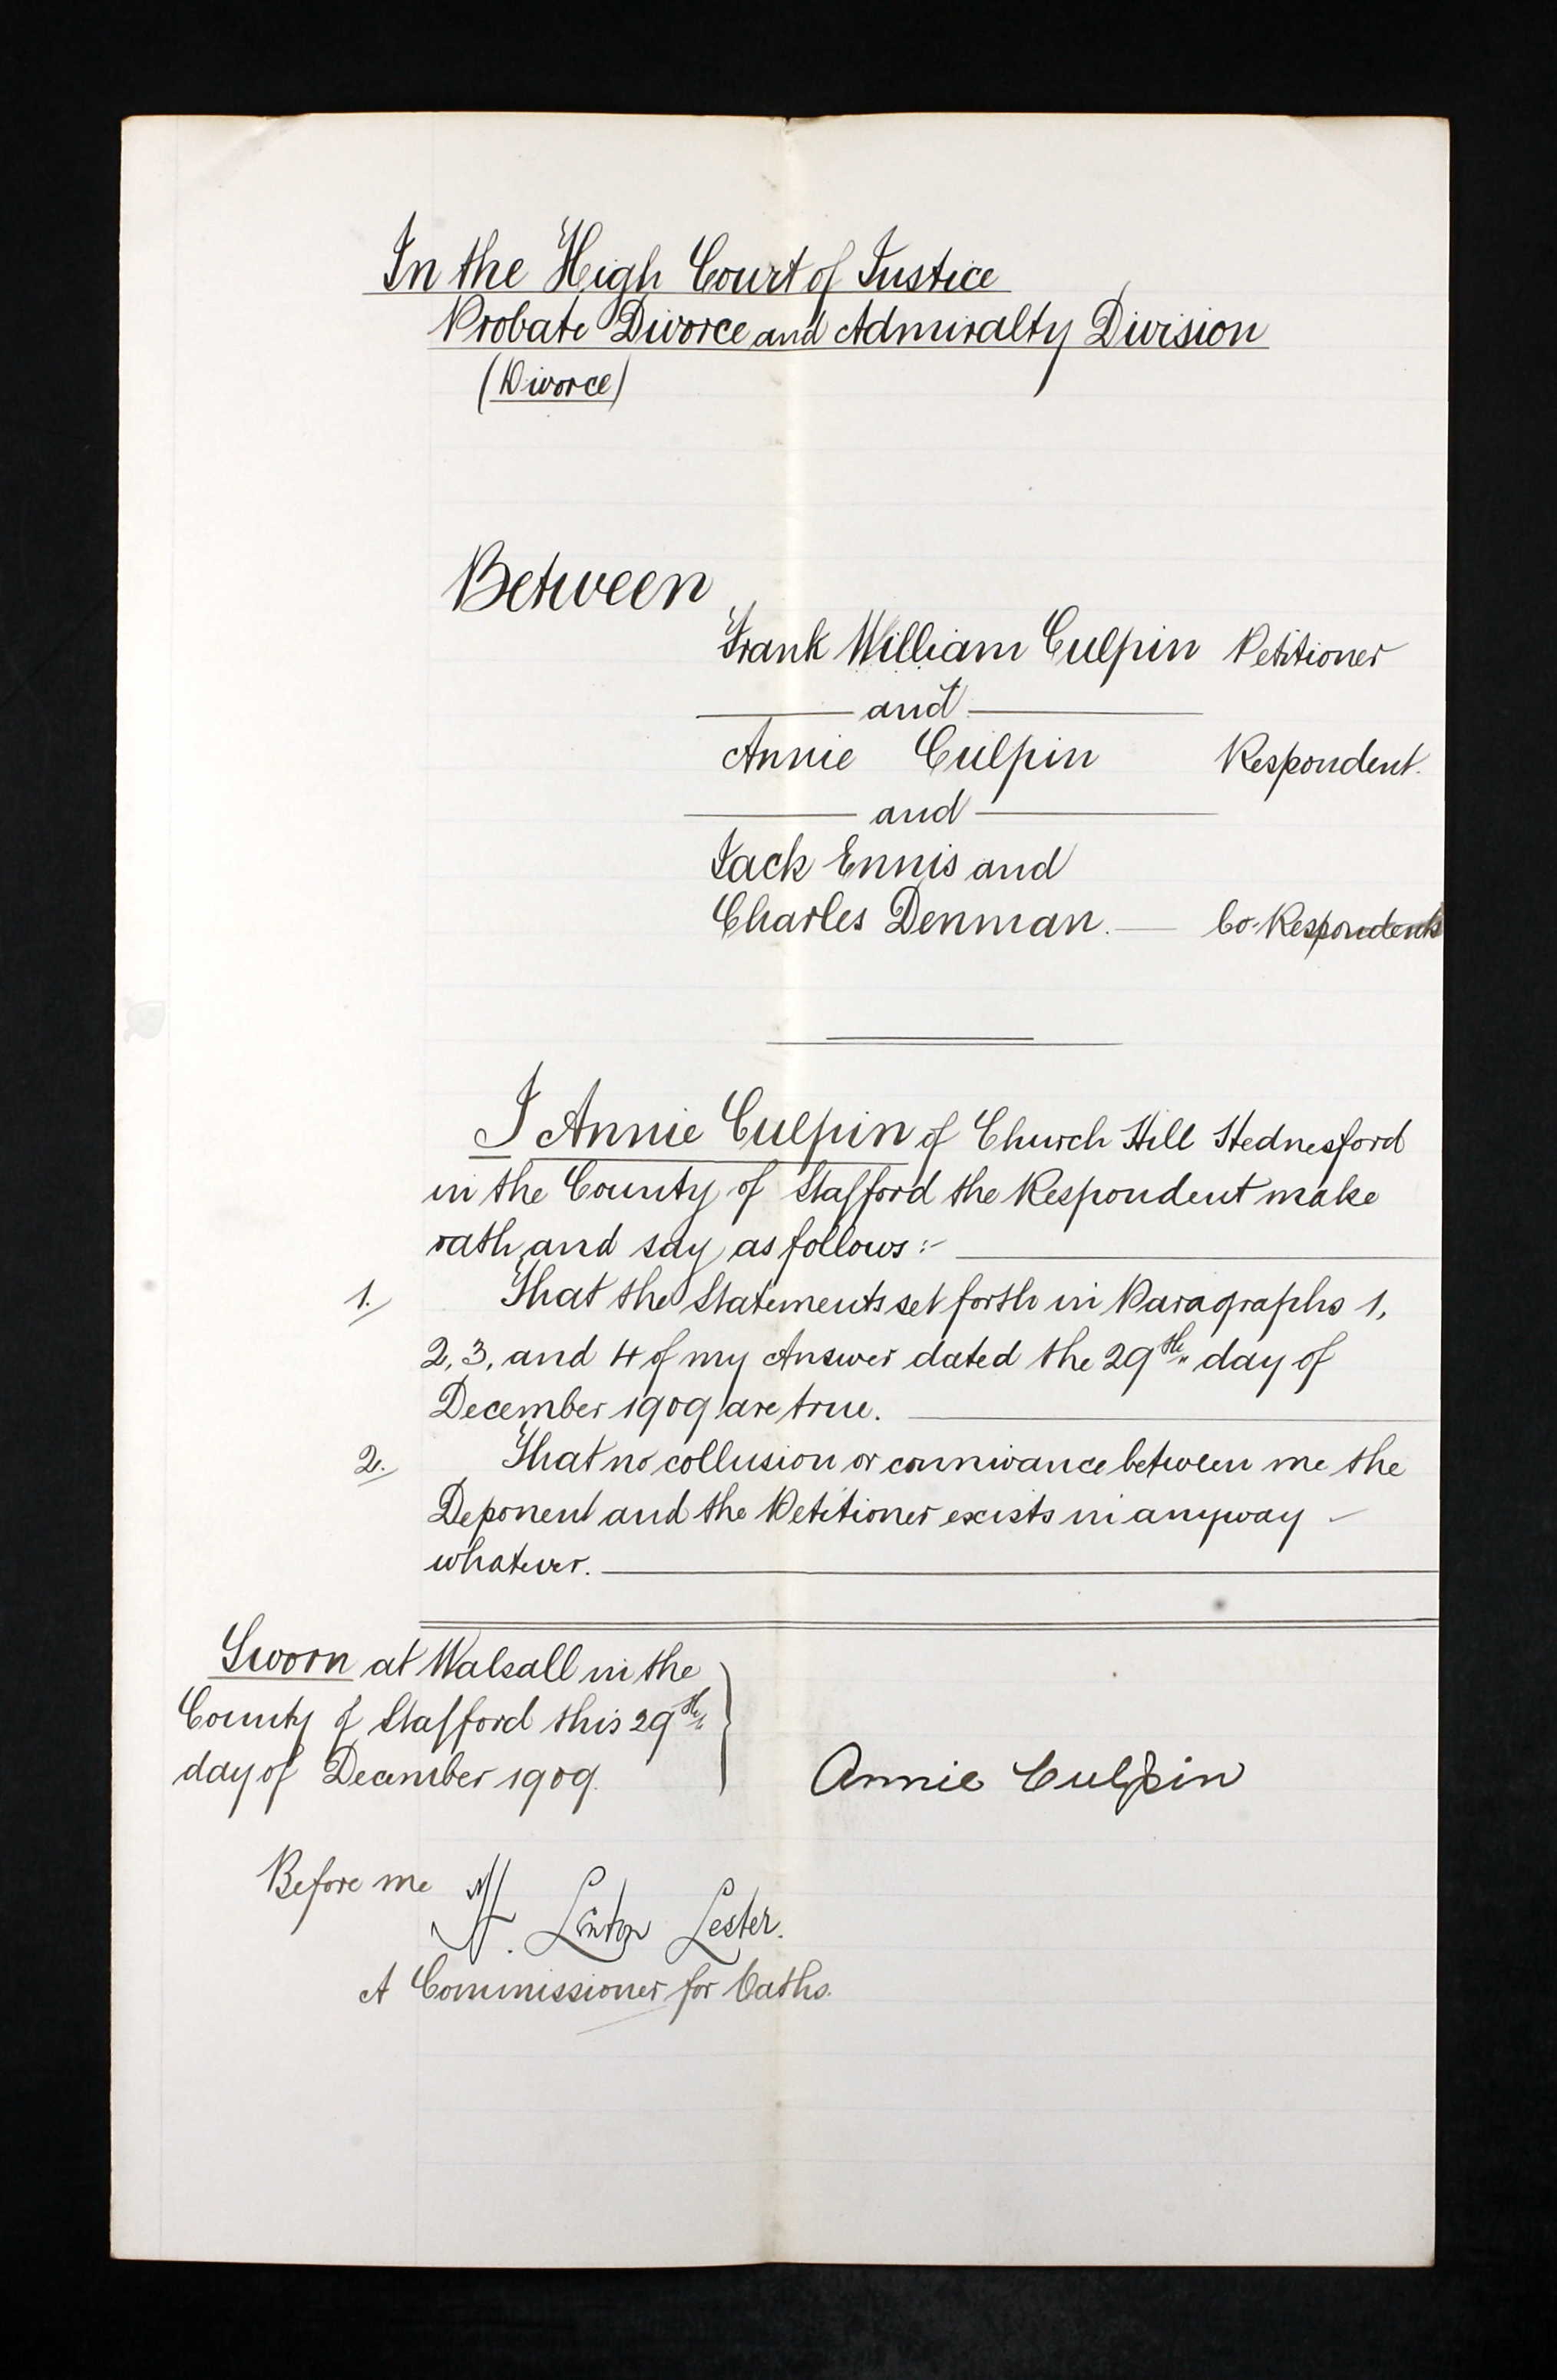 In the High Court of Justice
Probate Divorce and Admiralty Division
(Divorce)
Between
Frank William Culpin Petitioner
and
Annie Culpin Respondent.
and
Jack Ennis and
Charles Denman. Co-Respondents
I Annie Culpin of Church Hill Hednesford
in the County of Stafford the Respondent make
oath and say as follows:-
1. That the Statements set forth in Paragraphs 1,
2, 3, and 4 of my Answer dated the 29th day of
December 1909 are true.
2. That no collusion or connivance between me the
Deponent and the Petitioner exists in anyway
whatever.
Sworn at Walsall in the
County of Stafford this 29th
day of December 1909.
Annie Culpin
Before me
Linton Lester.
A Commissioner for Oaths.